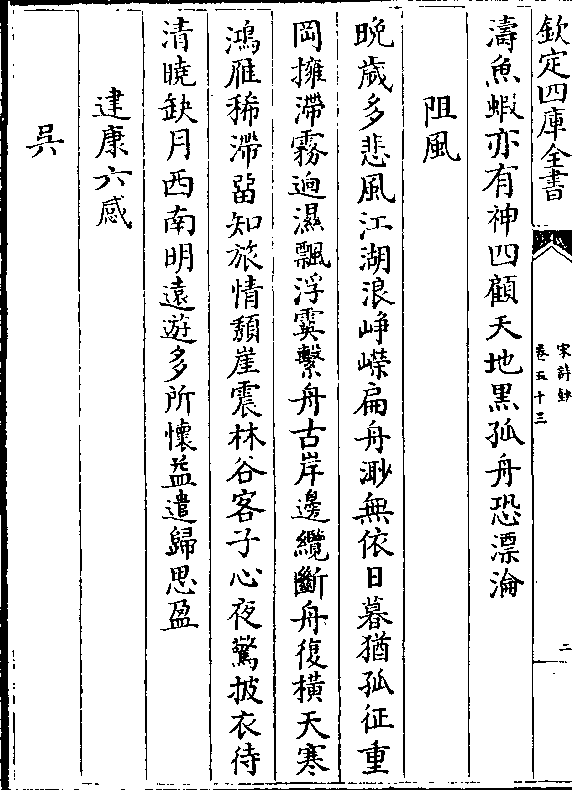 欽定四庫全書
宋詩鈔
卷五十三
二
濤魚蝦亦有神四顧天地黒孤舟恐漂淪
阻風
晚歲多悲風江湖浪崢嶸扁舟渺無依日暮猶孤征重
岡擁滯霧逈濕飄浮雲繫舟古岸邊纜斷舟復横天寒
鴻雁稀滯留知旅情頽崖震林谷客子心夜驚披衣待
清曉缺月西南明遠遊多所懷益遣歸思盈
建康六感
吳